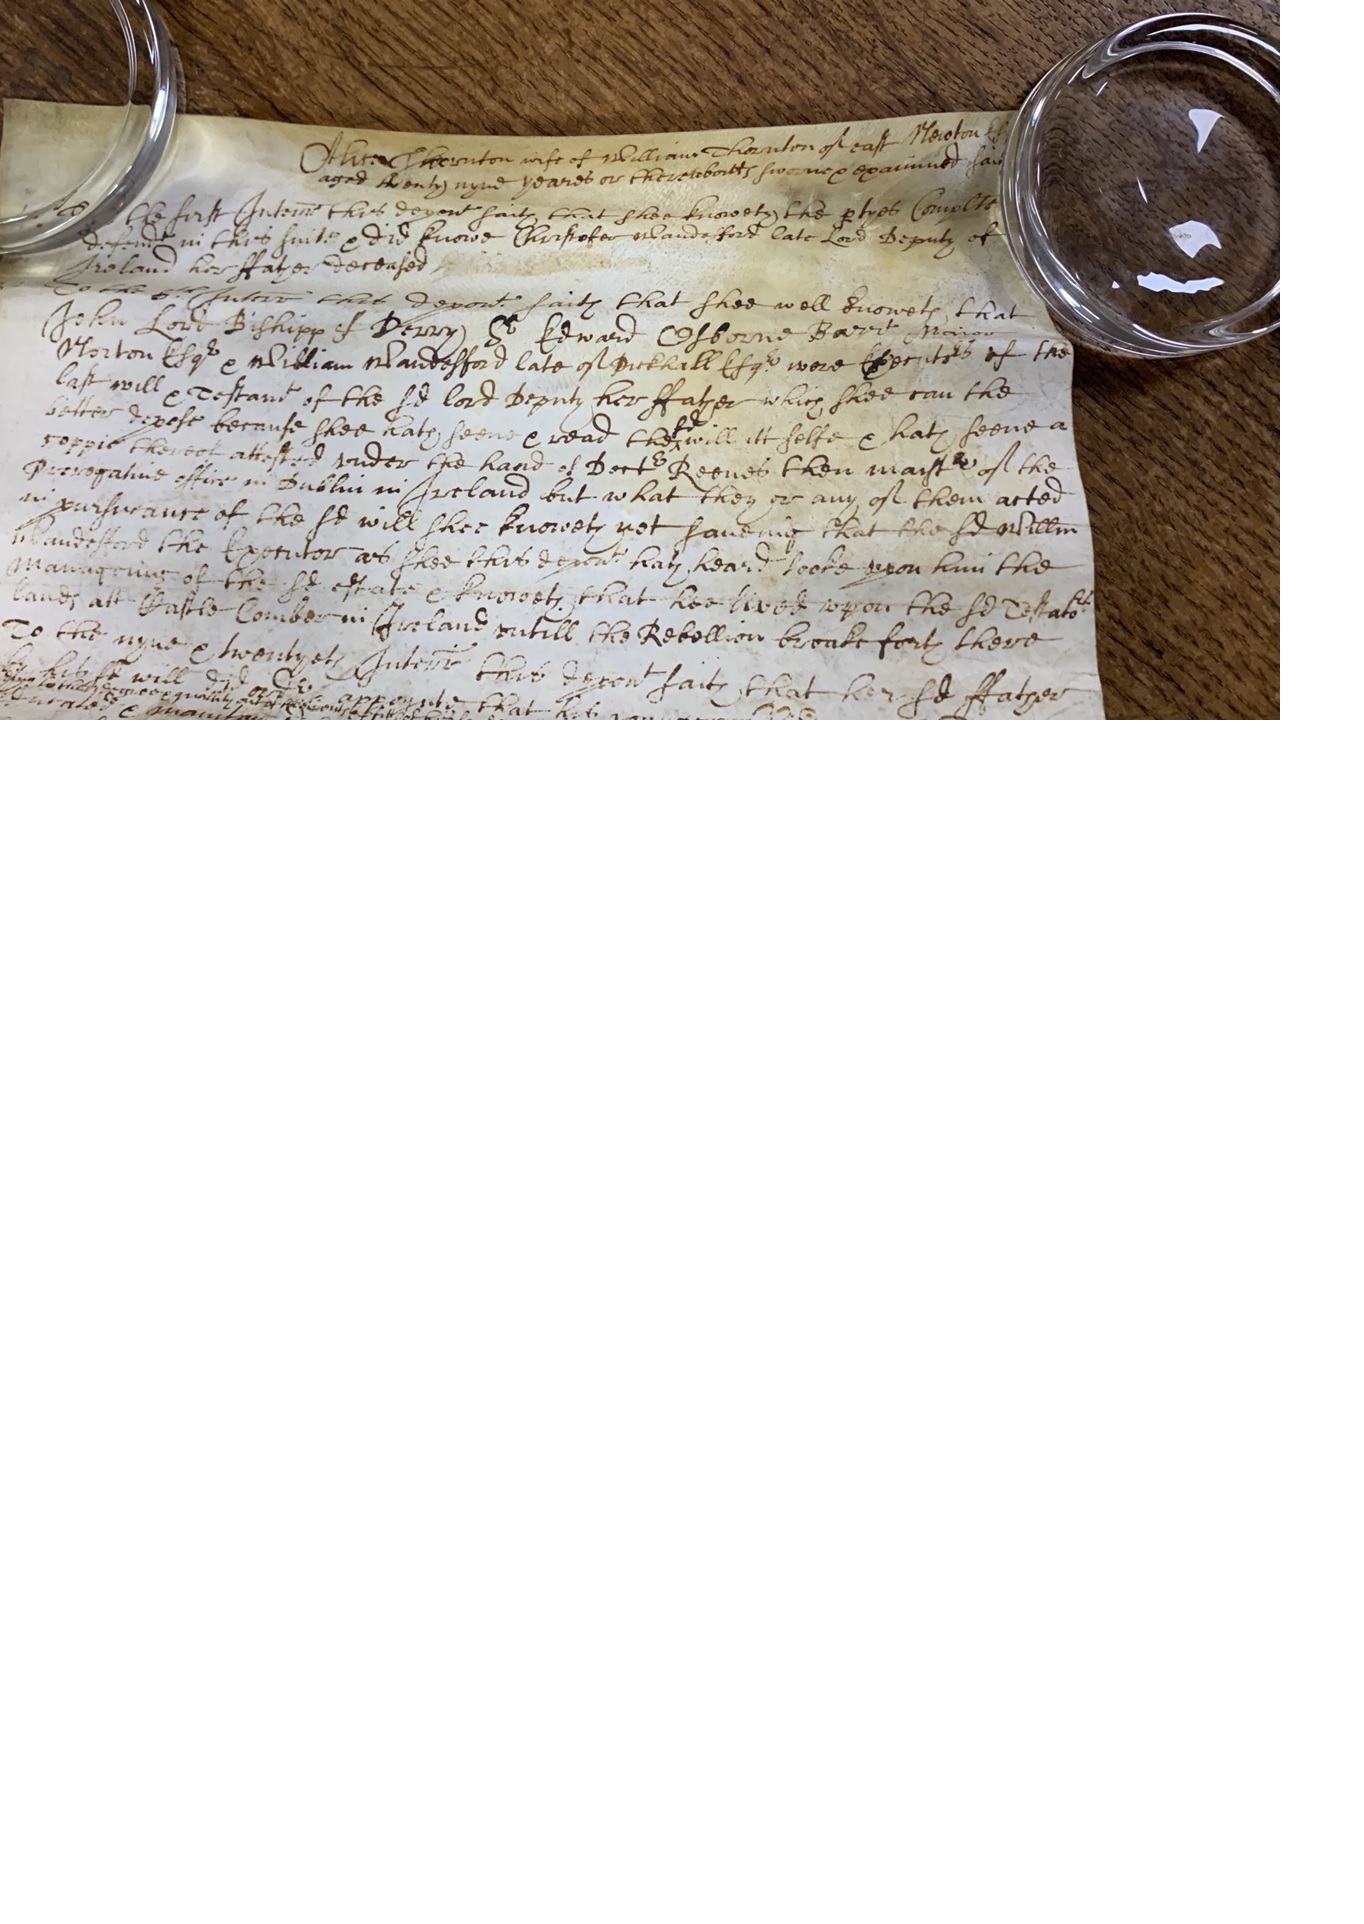 Alice Thornton wife of William Thornton of east Newton
aged twenty nyne yeares or thereabouts sworne & examined
the first Interr this depont saith that shee knoweth the ptyes Complte
defendt in this suite & did knowe Christofer Wandesford late Lord Deputy of
Ireland her ffather deceased
To the Interr this depont saith that shee well knoweth that
John Lord Bishipp of Derry Sr Edward Osborne Barrt
Norton Esqr & William Wandesford late of Pickhall Esqr were Executrs of the
last will & Testamt of the sd lord Deputy her ffather which shee can the
better depose because shee hath seene & read the sd will itt selfe & hath seene a
coppie thereof attested under the hand of Doctr Reeves then maistr of the
Prerogative office in Dublin in Ireland but what they or any of them acted
in pursueance of the sd will shee knoweth not saueing that the sd Willm
Wandesford the Executor as shee this depont hath heard tooke upon him the
Manageing of the sd estate & knoweth that hee lived upon the sd Testators
lands att Castle Comber in Ireland untill the Rebellion broake forth there
To the nyne & twentyeth Interr this depont saith that her sd ffather
by his sd will did appointe that his